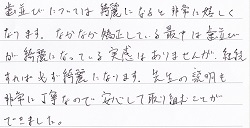 歯並びについては綺麗になると非常に嬉しく
なります。なかなか矯正している最中は歯並び
が綺麗になっている実感はありませんが、継続
すれば必ず綺麗になります。先生の説明も
非常に丁寧なので安心して取り組むことが
できました。